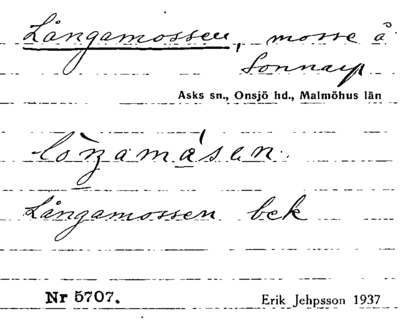 Långamossen, mosse å
Sonnarp
Asks sn., Onsjö hd., Malmöhus län
Långamossen bek
Nr 5707.
Erik Jehpsson 1937